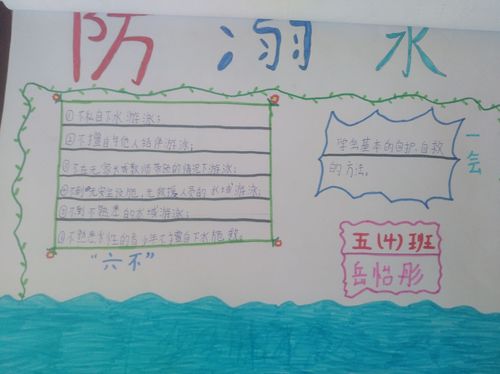 防溺水
①不私自下水游泳;
②不擅自与他人结伴游泳;
③不在无家长或教师带领的情况下游泳;
④不到无安全设施、无救援人员的水域游泳;
⑤不到不熟悉的水域游泳;
⑥不熟悉水性的青少年不擅自下水施救。
“六不”
学会基本的自护、自救
的方法。
一会
五(4)班
岳怡彤